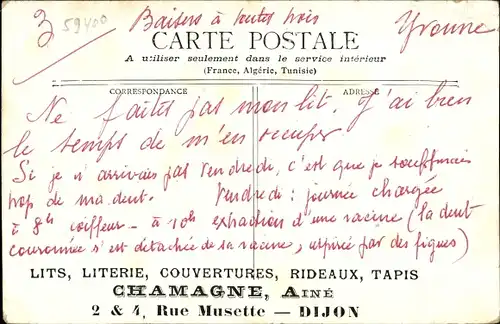 3 59400 Baisers à toutes trois Yvonne
CARTE POSTALE
A utiliser seulement dans le service intérieur
(France, Algérie, Tunisie)
CORRESPONDANCE ADRESSE
Ne faites pas mon lit. J'ai bien
le temps de m'en occuper
Si je n'arrivais pas Vendredi, c'est que je souffrirais
trop de ma dent. Vendredi : journée chargée
à 8h coiffeur - à 10h extraction d'une racine (la dent
couronnée s'est détachée de sa racine, aspirée par des figues)
LITS, LITERIE, COUVERTURES, RIDEAUX, TAPIS
CHAMAGNE, AINÉ
2 & 4, Rue Musette — DIJON